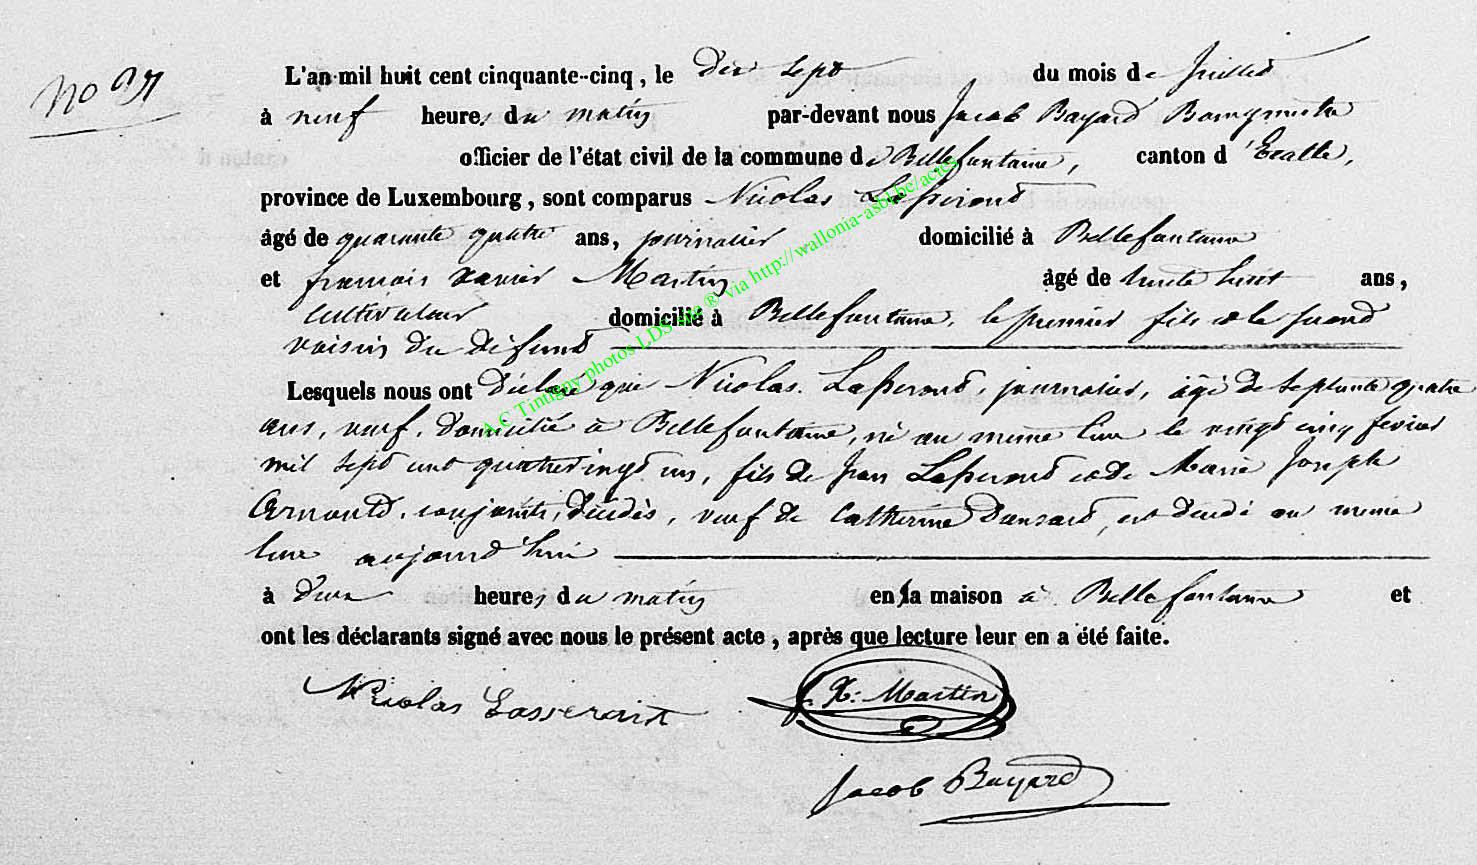 No 31
L'an mil huit cent cinquante-cinq, le dix sept du mois de juillet
à neuf heures du matin par-devant nous Jacob Bayard Bourgmestre
officier de l'état civil de la commune de Bellefontaine, canton d'Etalle,
province de Luxembourg, sont comparus Nicolas Lasseront
âgé de quarante quatre ans, journalier domicilié à Bellefontaine
et francois xavier Martin âgé de trente huit ans,
cultivateur domicilié à Bellefontaine, le premier fils et le second
voisin du défunt
Lesquels nous ont déclaré que Nicolas Lasseront, journalier, âgé de septante quatre
ans, veuf, domicilié à Bellefontaine, né au meme lieu le vingt cinq fevrier
mil sept cent quatrevingt un, fils de Jean Lasseront et de Marie Joseph
Arnould, conjoints, décédés, veuf de Catherine Dansard, est décédé au meme
lieu aujourd'hui
à deux heures du matin en la maison à Bellefontaine et
ont les déclarants signé avec nous le présent acte, après que lecture leur en a été faite.
Nicolas Lasseront f. X: Martin
Jacob Bayard
A.C Tintigny photos LDS via ® via http://wallonia-asbl.be/actes